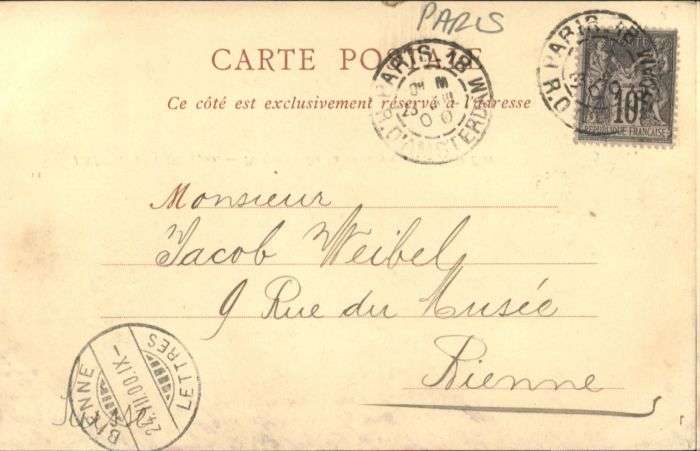 PARIS
CARTE POSTALE
Ce côté est exclusivement réservé à l'adresse
PARIS 18
R. D'AMSTERDAM
23
00
PARIS 18
R. D'
AM
10
REPUBLIQUE FRANÇAISE
Monsieur
Jacob Weibel
9 Rue du Musée
Bienne
Suisse
BIENNE
LETTRES
24.VII.00.IX-